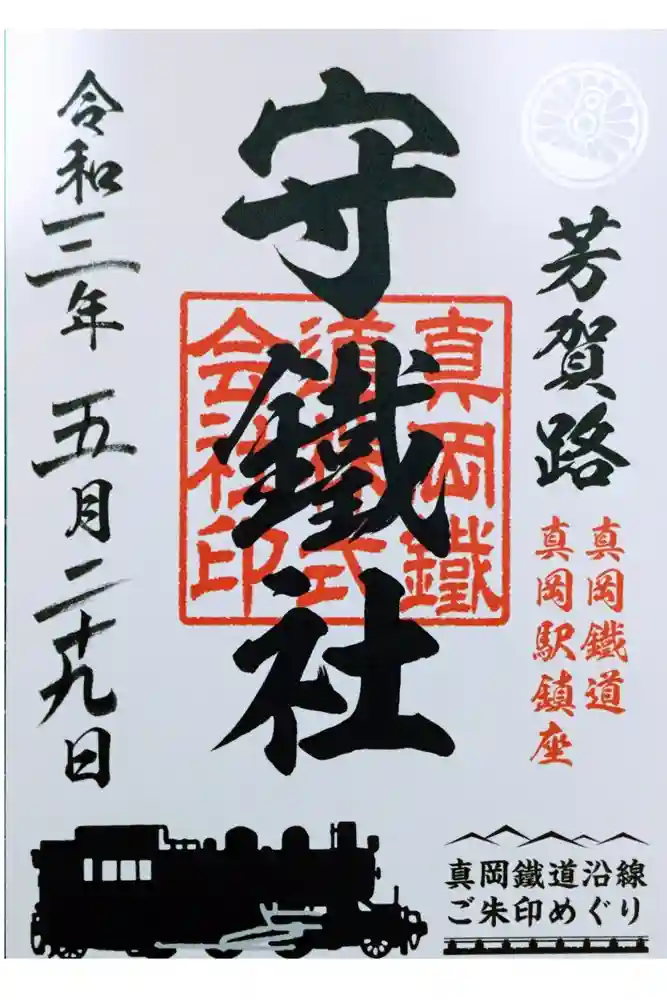 芳賀路
真岡鐵道
真岡駅鎮座
守鐵社
真岡鐵
道株式
会社印
令和三年 五月二十九日
真岡鐵道沿線
ご朱印めぐり